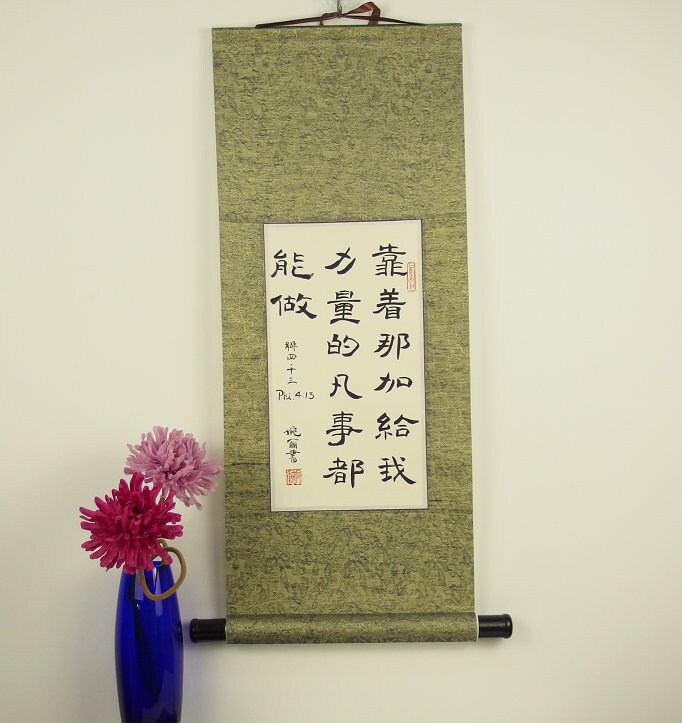 靠着那加給我
力量的凡事都
能做
腓四·十三
Phi. 4:13
婉翁書